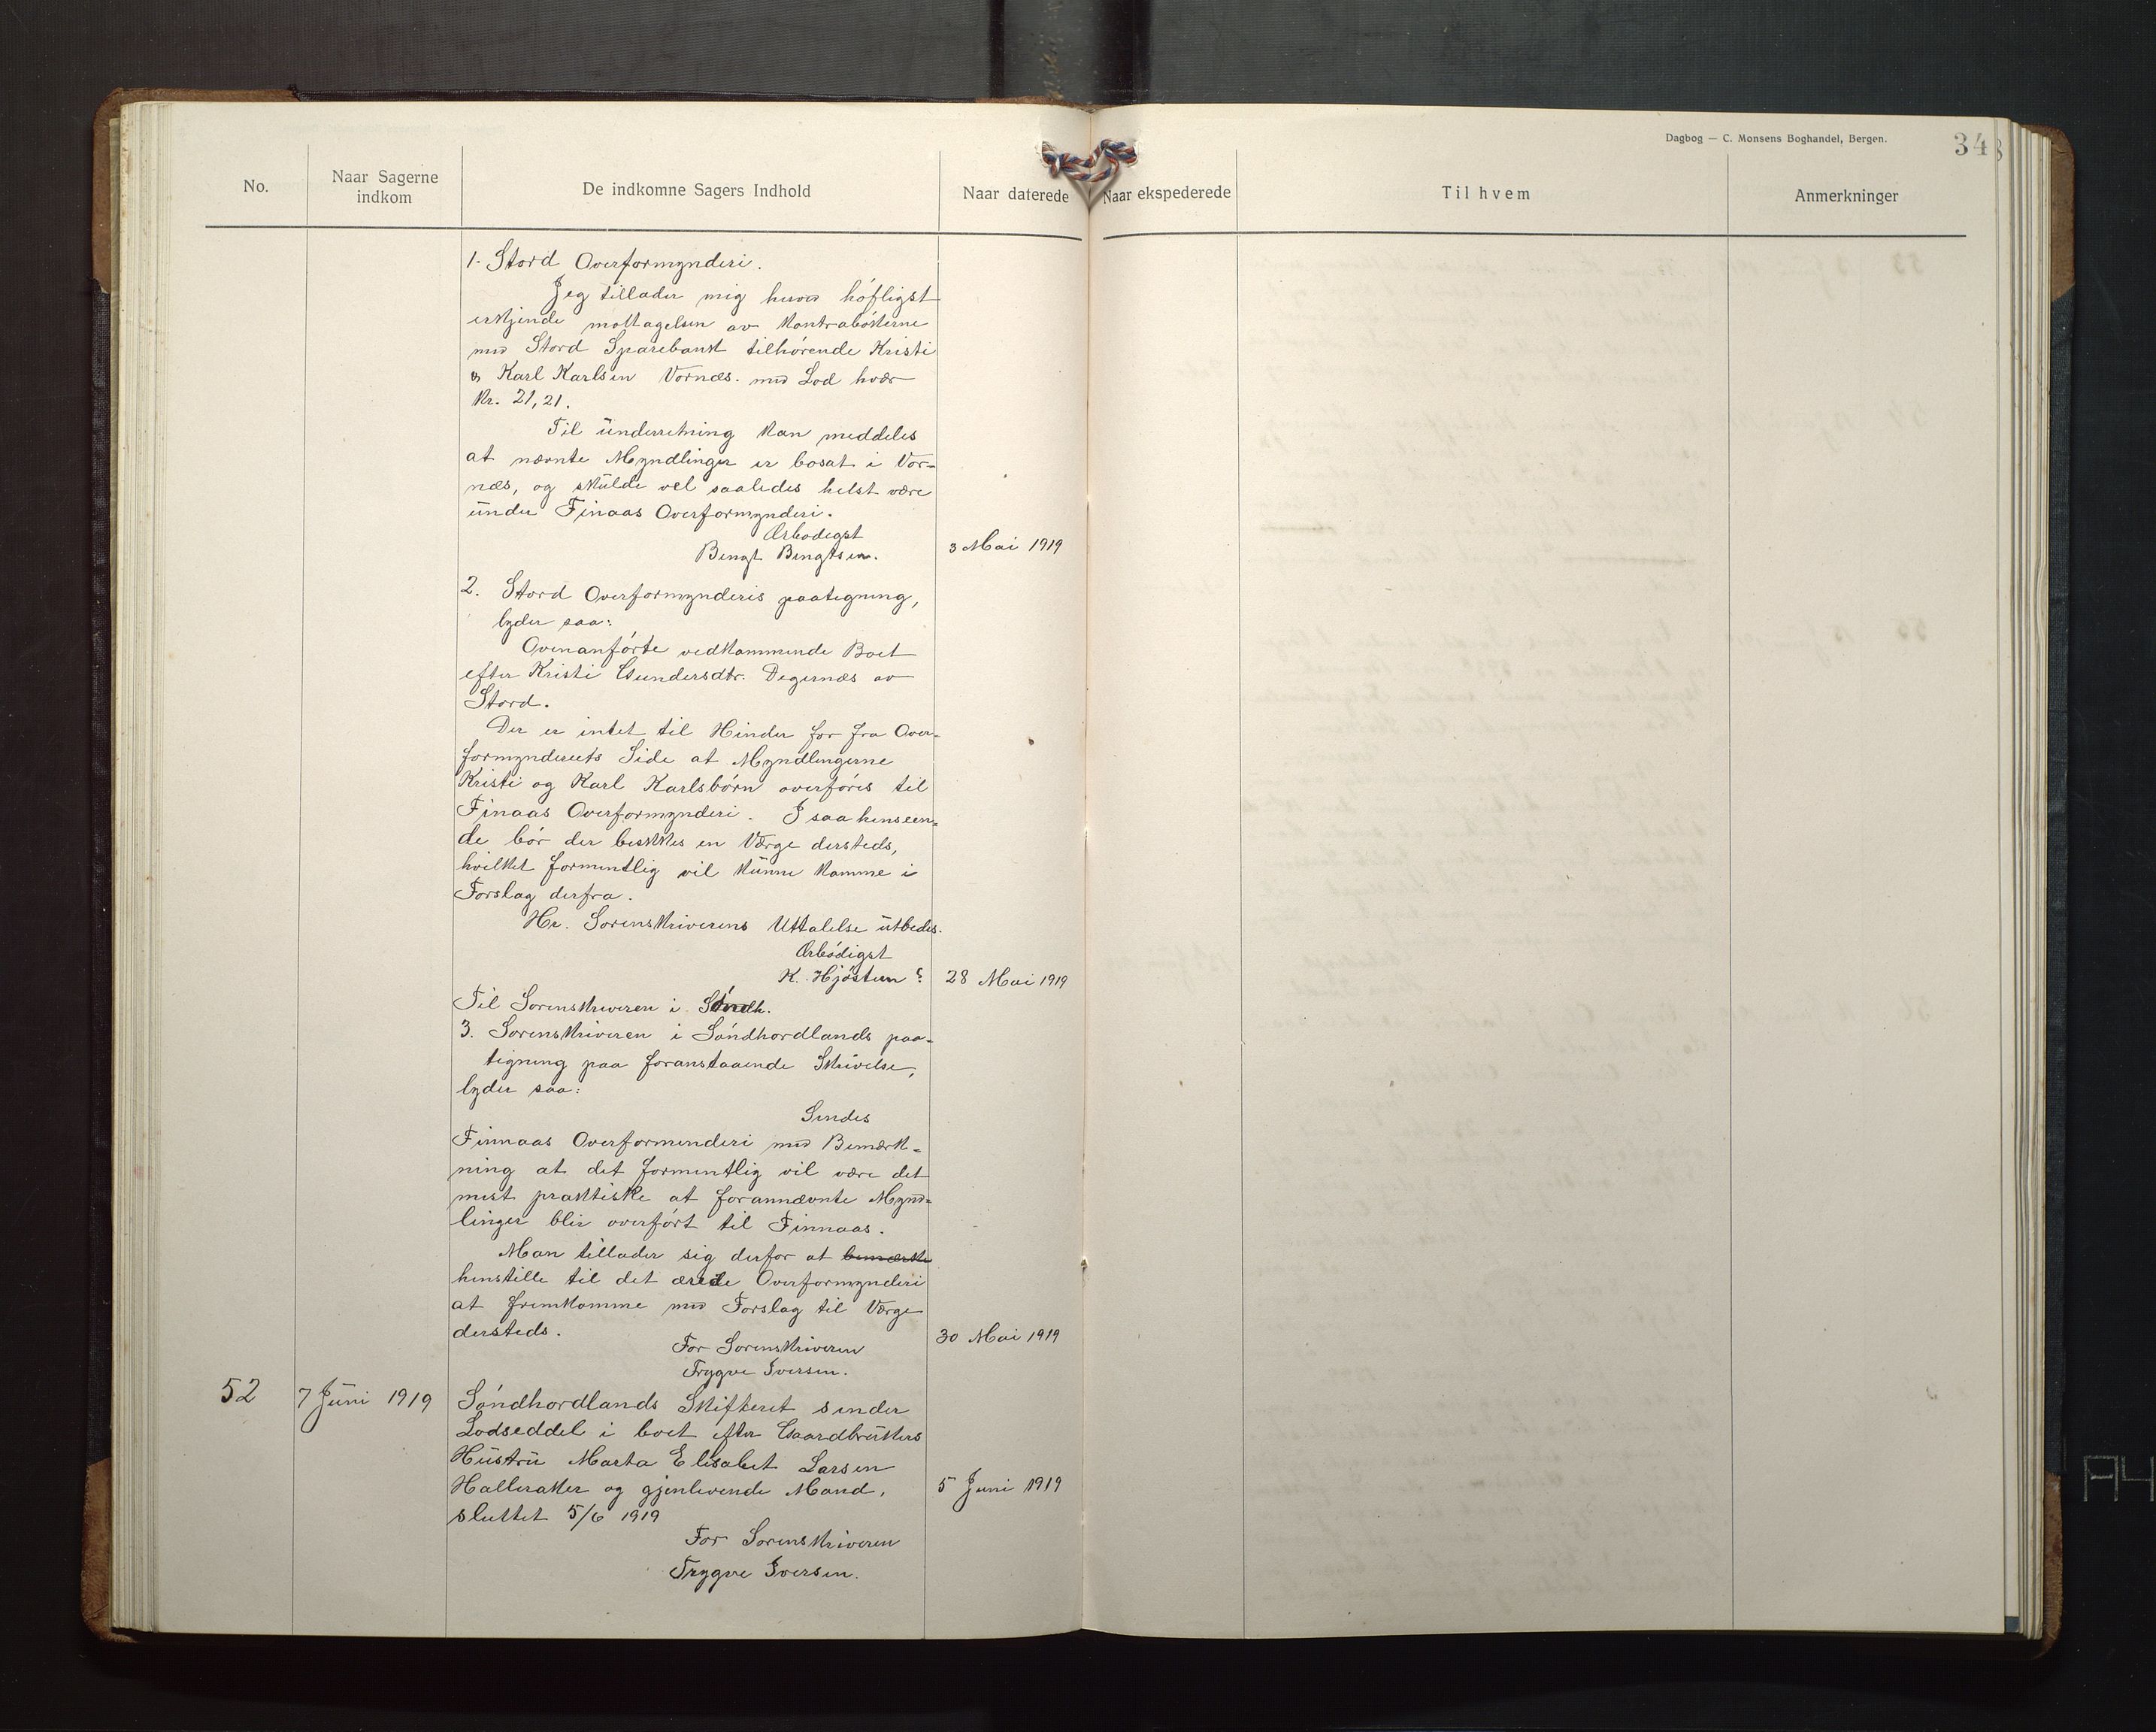 Dagbog — C. Monsens Boghandel, Bergen.
34
No.
Naar Sagerne indkom
De indkomne Sagers Indhold
Naar daterede
Naar ekspederede
Til hvem
Anmerkninger
1. Stord Overformynderi.
Jeg tillader mig herved höfligst
erkjende mottagelsen av Kontrabökerne
med Stord Sparebank tilhörende Kristi
og Karl Karlsen Vornæs. med Lod hver
Kr. 21,21.
Til ünderretning kan meddeles
at nævnte Myndlinger er bosat i Vor-
næs, og skülde vel saaledes helst være
ünder Finaas Overformynderi.
Ærbodigst
Bengt Bengtsen.
3 Mai 1919
2. Stord Overformynderis paategning,
lyder saa:
Ovenanförte vedkommende Boet
efter Kristi Gundersdtr. Degernæs av
Stord.
Der er intet til Hinder for fra Over-
formynderiets Side at Myndlingerne
Kristi og Karl Karlsbörn overföres til
Finaas Overformynderi. I saa henseen-
de bör der beskikkes en Værge dersteds,
hvilket formentlig vil künne komme i
Forslag derfra.
Hr. Sorenskriverens Uttalelse ütbedes.
Ærbödigst
K. Hjöstum ?
28 Mai 1919
Til Sorenskriveren i Söndh.
3. Sorenskriveren i Söndhordlands paa-
tegning paa foranstaaende Skrivelse,
lyder saa:
Sendes
Finnaas Overformenderi med Bemærk-
ning at det formentlig vil være det
mest praktiske at forannævnte Mynd-
linger blir overfört til Finnaas.
Man tillader sig derfor at bemærke
henstille til det ærede Overformynderi
at fremkomme med Forslag til Værge
dersteds.
30 Mai 1919
For Sorenskriveren
Trygve Iversen.
52
7 Jüni 1919
Söndhordlands Skifteret sender
Lodseddel i boet efter Gaardbrükers
Hüstrü Marta Elisabet Larsen
Halleraker og gjenlevende Mand,
5 Juni 1919
sluttet 5/6 1919
For Sorenskriveren
Trygve Iversen.